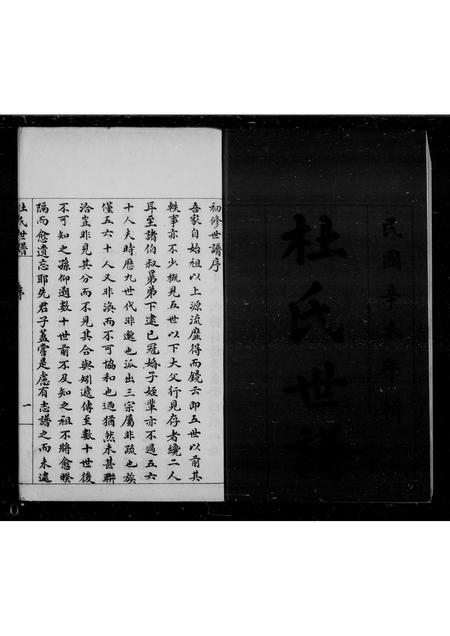 民國辛未年輯
杜氏世譜
初修世譜序
吾家自始祖以上源流靡得而鏡云即五世以前其
軼事亦不少概見五世以下大父行見存者纔二人
耳至諸伯叔弟下逮已冠婚子姪輩亦不過五六
十人夫時歷九世代非邈也派出三宗屬非疏也族
僅五六十人又非渙而不可協和也迺猶然未甚聯
洽豈非見其分而不見其合與矧遞傳至數十世後
不可知之孫仰遡數十世前不及知之祖不將愈暌
隔而愈遺忘耶先君子蓋嘗是慮有志譜之而未遑
杜氏世譜 序 一